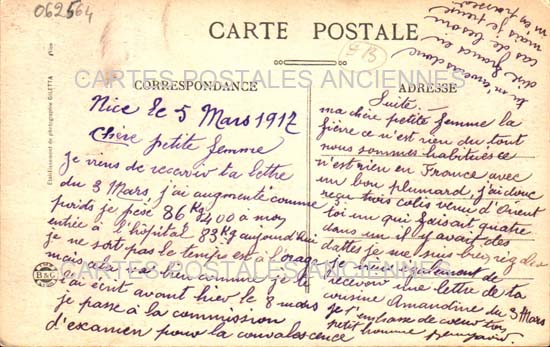 062564
CARTE POSTALE
CARTES POSTALES ANCIENNES
CORRESPONDANCE
ADRESSE
Etablissement de photographie GILETTA
Nice
B&G
Nice le 5 Mars 1917
Chère petite femme
je viens de recevoir ta lettre
du 3 Mars, j'ai augmenté comme
poids je pèse 86 Kg 400 à mon
entrée à l'hôpital 83 Kg aujourd'hui
je ne sort pas le temps est à l'orage
mais je comme je te
l'ai écrit avant hier le 8 mars
je passe à la commission
d'examen pour la convalescence
Suite
ma chère petite femme la
fièvre ce n'est rien du tout
nous sommes habitués ce
n'est rien en France avec
un bon plumard, j'ai donc
reçu trois colis venu d'Orient
toi un qui faisait quatre
dans un il y avait des
dattes je me suis bien régalé
je viens également de
recevoir une lettre de ta
cousine Amandine du 3 Mars
je t'embrasse de coeur ton
petit homme
tu m'enverras donc
dix francs en
cas de besoin
mais je peux
m'en passer
CARTES POSTALES ANCIENNES